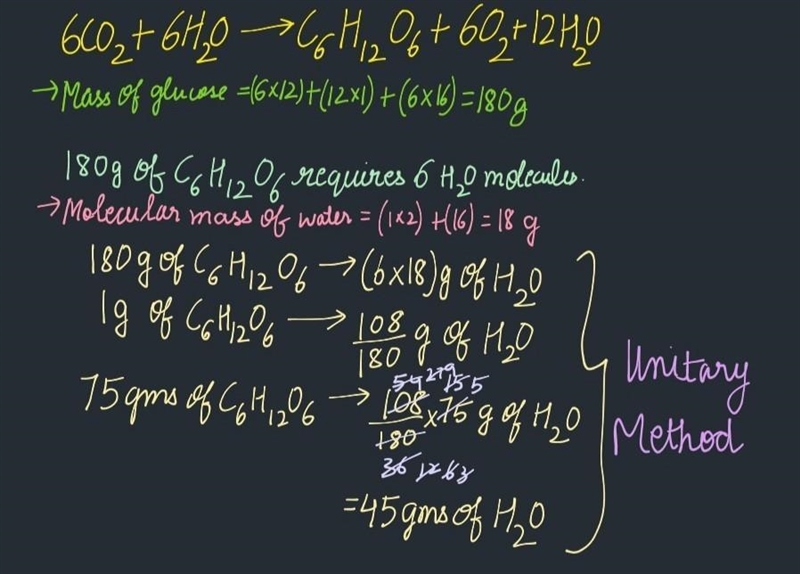 6CO₂+6H₂O → C₆H₁₂O₆+6O₂+12H₂O
→Mass of glucose =(6×12)+(12×1)+(6×16)=180g
180g of C₆H₁₂O₆ requires 6 H₂O molecules.
→Molecular mass of water = (1×2)+(16) = 18 g
180g of C₆H₁₂O₆ → (6×18)g of H₂O
1g of C₆H₁₂O₆ → 108/180 g of H₂O
75gms of C₆H₁₂O₆ → 108/180 ×75 g of H₂O
=45gms of H₂O
Unitary
Method